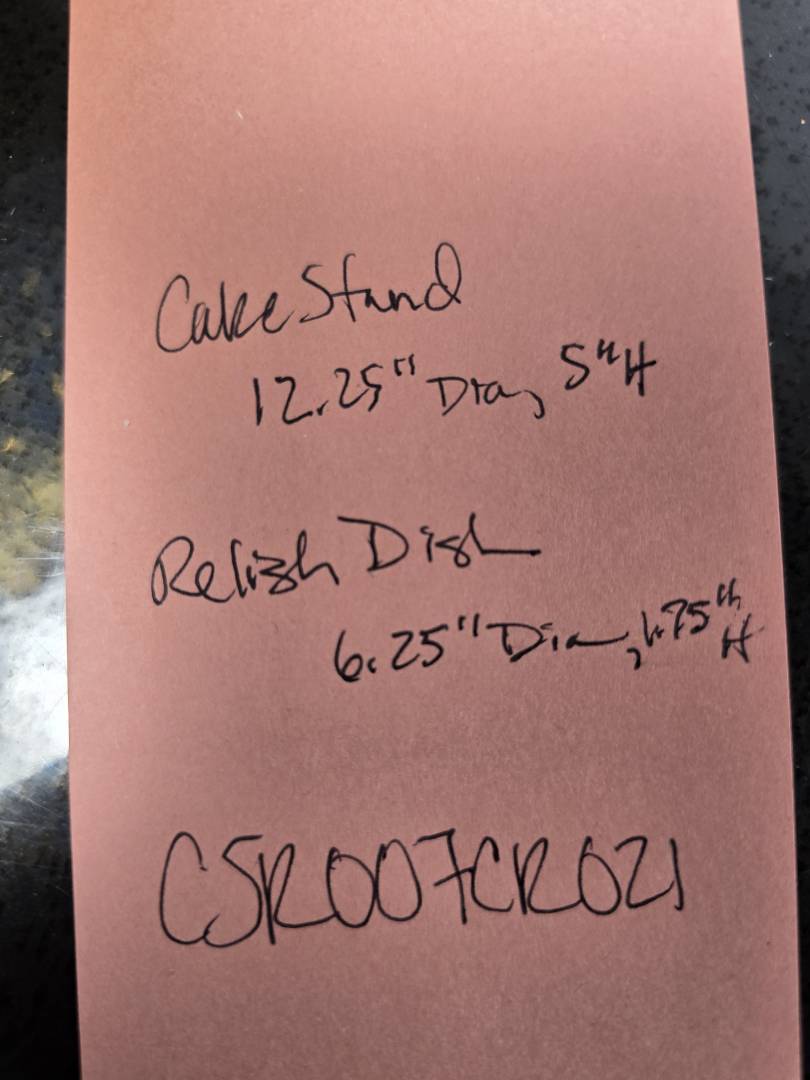 Cake Stand
12.25" Dia, 5" H
Relish Dish
6.25" Dia, 1.75" H
C5R007CR021